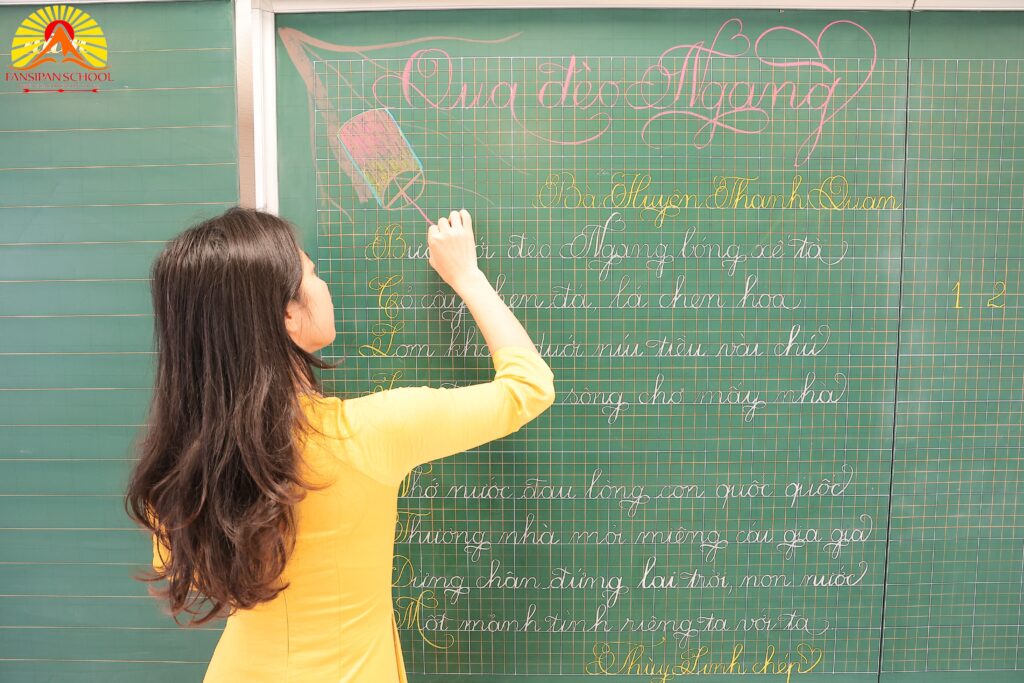 FANSIPAN SCHOOL
Qua đèo Ngang
Bà Huyện Thanh Quan
đèo Ngang bóng xế tà
Cỏ cây chen đá, lá chen hoa
Lom dưới núi tiều vài chú
1 2
sông chợ mấy nhà
Nhớ nước đau lòng con quốc quốc
Thương nhà mỏi miệng cái gia gia
Dừng chân đứng lại trời, non nước
Một mảnh tình riêng ta với ta
Thùy Linh chép